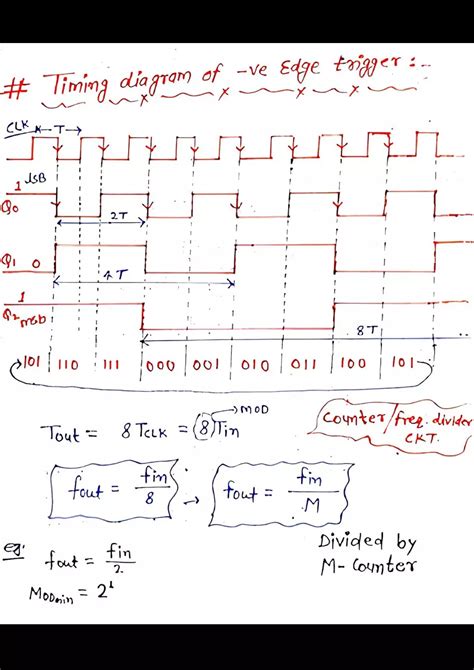 # Timing diagram of -ve Edge trigger :-
CLK ←T→
1 LSB
Q0
2T
Q1 0
4T
1
Q2 MSB
8T
101 | 110 | 111 | 000 | 001 | 010 | 011 | 100 | 101
MOD
Tout = 8TCLK = (8)Tin
Counter/freq. divider
CKT.
fout = fin/8 → fout = fin/M
eg: fout = fin/2
MODmin = 2¹
Divided by
M- Counter